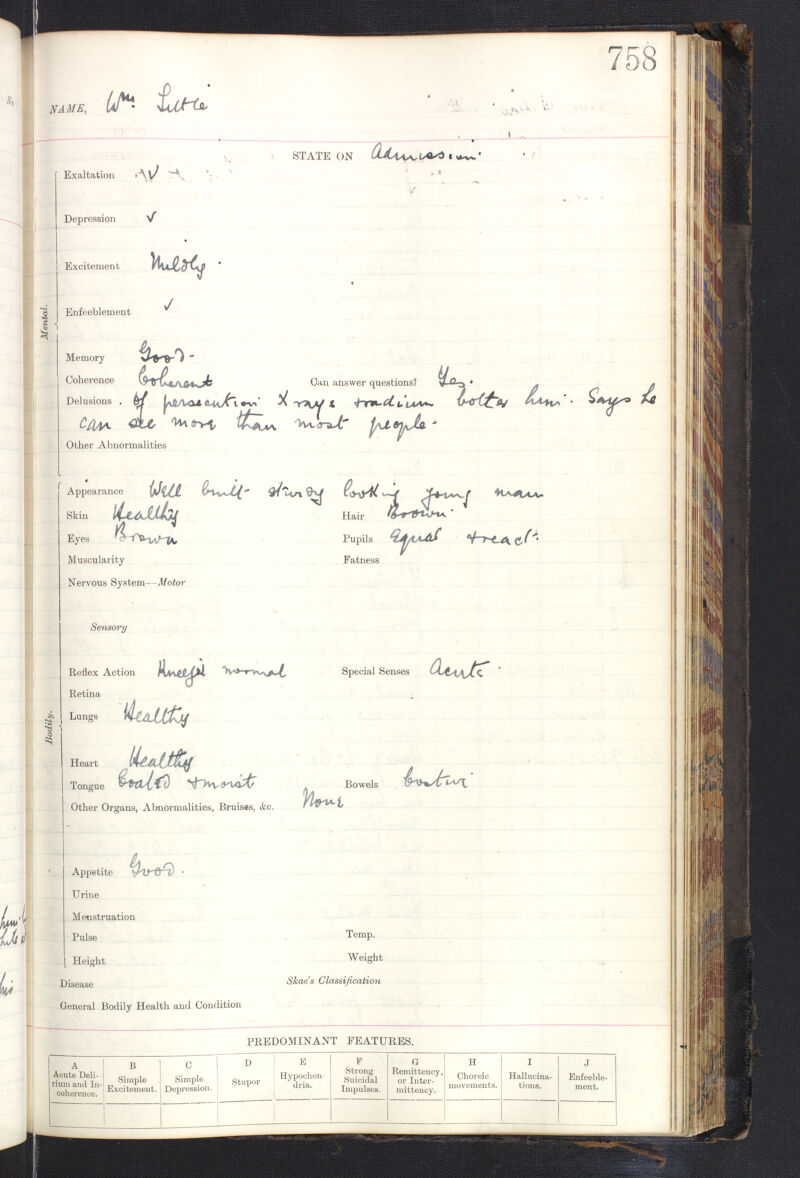 758
NAME, Wm. Little
STATE ON Admission
Exaltation √
Depression √
Excitement Mildly.
Mental.
Enfeeblement √
Memory Good.
Coherence Coherent Can answer questions? Yes.
Delusions. Of persecution X rays & radium bother him. Says he
can see more than most people.
Other Abnormalities
Appearance Well built sturdy looking young man
Skin Healthy Hair Brown.
Eyes Brown Pupils Equal & react.
Muscularity Fatness
Nervous System—Motor
Sensory
Reflex Action normal Special Senses Acute
Retina
Bodily.
Lungs Healthy
Heart Healthy
Tongue Coated & moist Bowels Costive
Other Organs, Abnormalities, Bruises, &c. None
Appetite Good.
Urine
Menstruation
Pulse Temp.
Height Weight
Disease Skae's Classification
General Bodily Health and Condition
PREDOMINANT FEATURES.
A B C D E F G H I J
Acute Deli- Simple Simple Stupor Hypochon- Strong Remittency, Choreic Hallucina- Enfeeble-
rium and In- Excitement. Depression. dria. Suicidal or Inter- movements. tions. ment.
coherence. Impulses. mittency.